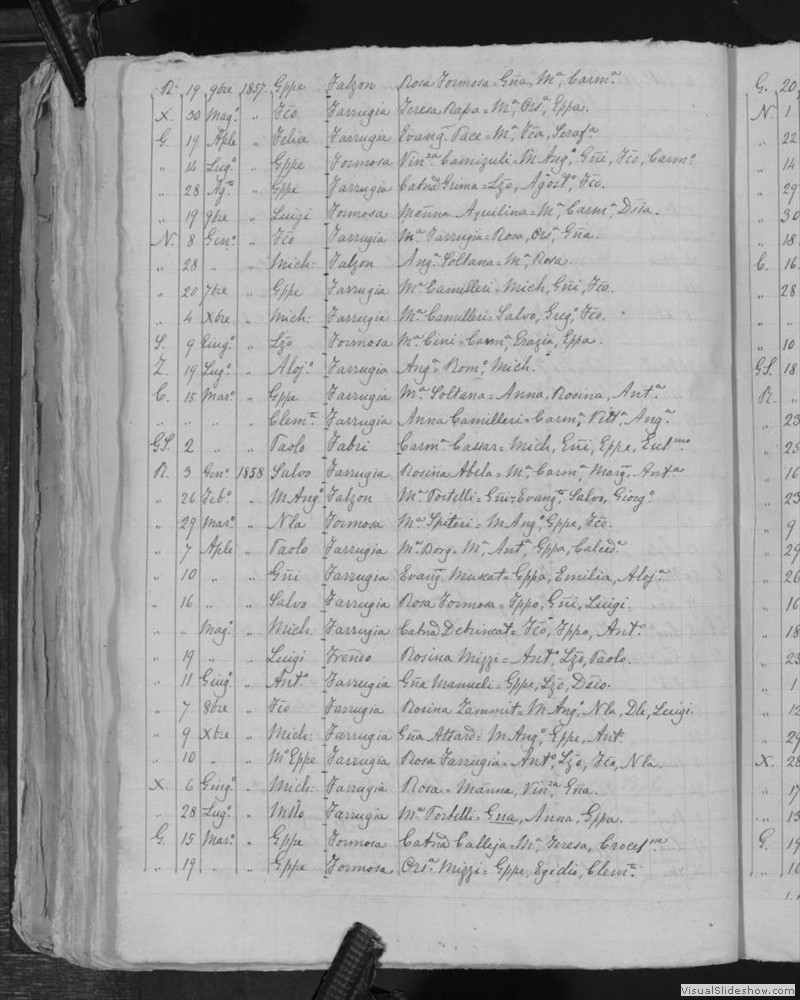 R. 19 9bre 1857 Gppe Falzon Rosa Formosa = Gña, Mª, Carmª.
X. 30 Magº „ Fcõ Farrugia Teresa Rapa = Mª, Orsª, Gppa.
G. 19 Aple „ Felic Farrugia Evangª Pace = Mª, Fca, Serafª
„ 14 Lugº „ Gppe Formosa Vinzª Camizuli = M Angº, Gñi, Fcõ, Carmº
„ 28 Agº „ Gppe Farrugia Catnã Grima = Lzõ, Agostº, Fcõ.
„ 19 9bre „ Luigi Formosa Aquilina = Mª, Carmª, Dsia.
N. 8 Genº „ Fcõ Farrugia Mª Farrugia = Rosa, Orsª, Gña.
„ 28 „ „ Mich: Falzon Angª Soltana = Mª, Rosa.
„ 20 7bre „ Gppe Farrugia Mª Camilleri = Mich, Gñi, Fcõ.
„ 4 Xbre „ Mich: Farrugia Mª Camilleri = Salvo, Gregº, Fcõ.
S. 9 Giugº „ Lzõ Formosa Mª Cini = Carmª, Grazia, Gppa.
Z. 19 Lugº „ Alojº Farrugia Angª = Romº, Mich.
C. 15 Marº „ Gppe Farrugia Mª Soltana = Anna, Rosina, Antª
„ „ „ „ Clemte Farrugia Anna Camilleri = Carmª, Vittª, Angª
GS. 2 „ „ Paolo Fabri Carmª Cassar = Mich, Gñi, Gppe,
R. 3 Genº 1858 Salvo Farrugia Rosina Abela = Mª, Carmª, Margª, Antª
„ 26 Febº „ M Angº Falzon Mª Portelli = Gñi, Evangª, Salvo, Giorgº
„ 29 Marº „ Nla Formosa Mª Spiteri = M Angº, Gppe, Fcõ.
„ 7 Aple „ Paolo Farrugia Mª Borg = Mª, Antª, Gppa, Calcedª
„ 10 „ „ Gñi Farrugia Evangª Muscat = Gppa, Emilia, Alojª
„ 16 „ „ Salvo Farrugia Rosa Formosa = Fppo, Gñi, Luigi.
„ „ Magº „ Mich. Farrugia Catnã Detrincat = Fcõ, Fppo, Antº.
„ 19 „ „ Luigi Frendo Rosina Mizzi = Antº, Lzõ, Paolo.
„ 11 Giugº „ Antº Farrugia Gña Manueli = Gppe, Lzõ, Dsio.
„ 7 8bre „ Fcõ Farrugia Rosina Zammit = M Angº, Nla, Dle, Luigi.
„ 9 Xbre „ Mich: Farrugia Gña Attard = M Angº, Gppe, Ant.
„ 10 „ „ Mº Gppe Farrugia Rosa Farrugia = Antº, Lzõ, Fcõ, Nla.
X. 6 Giugº „ Mich: Farrugia Rosa = Vinzª, Gña.
„ 28 Lugº „ Farrugia Mª Portelli = Gña, Anna, Gppa.
G. 15 Marº „ Gppe Formosa Catnã Calleja = Mª, Teresa,
„ 19 „ „ Gppe Formosa Orsª Mizzi = Gppe, Egidio, Clemte
G. 20
N. 1
„ 22
„ 14
„ 29
„ 30
„ 18
C. 16
„ 28
„ „
„ 10
GS. 18
R. „
„ 23
„ 25
„ 16
„ 23
„ 9
„ 29
„ 26
„ 16
„ 18
„ 23
„ 1
„ 12
„ 29
X. 28
„ 17
„ 13
G. 19
„ 10
VisualSlideshow.com